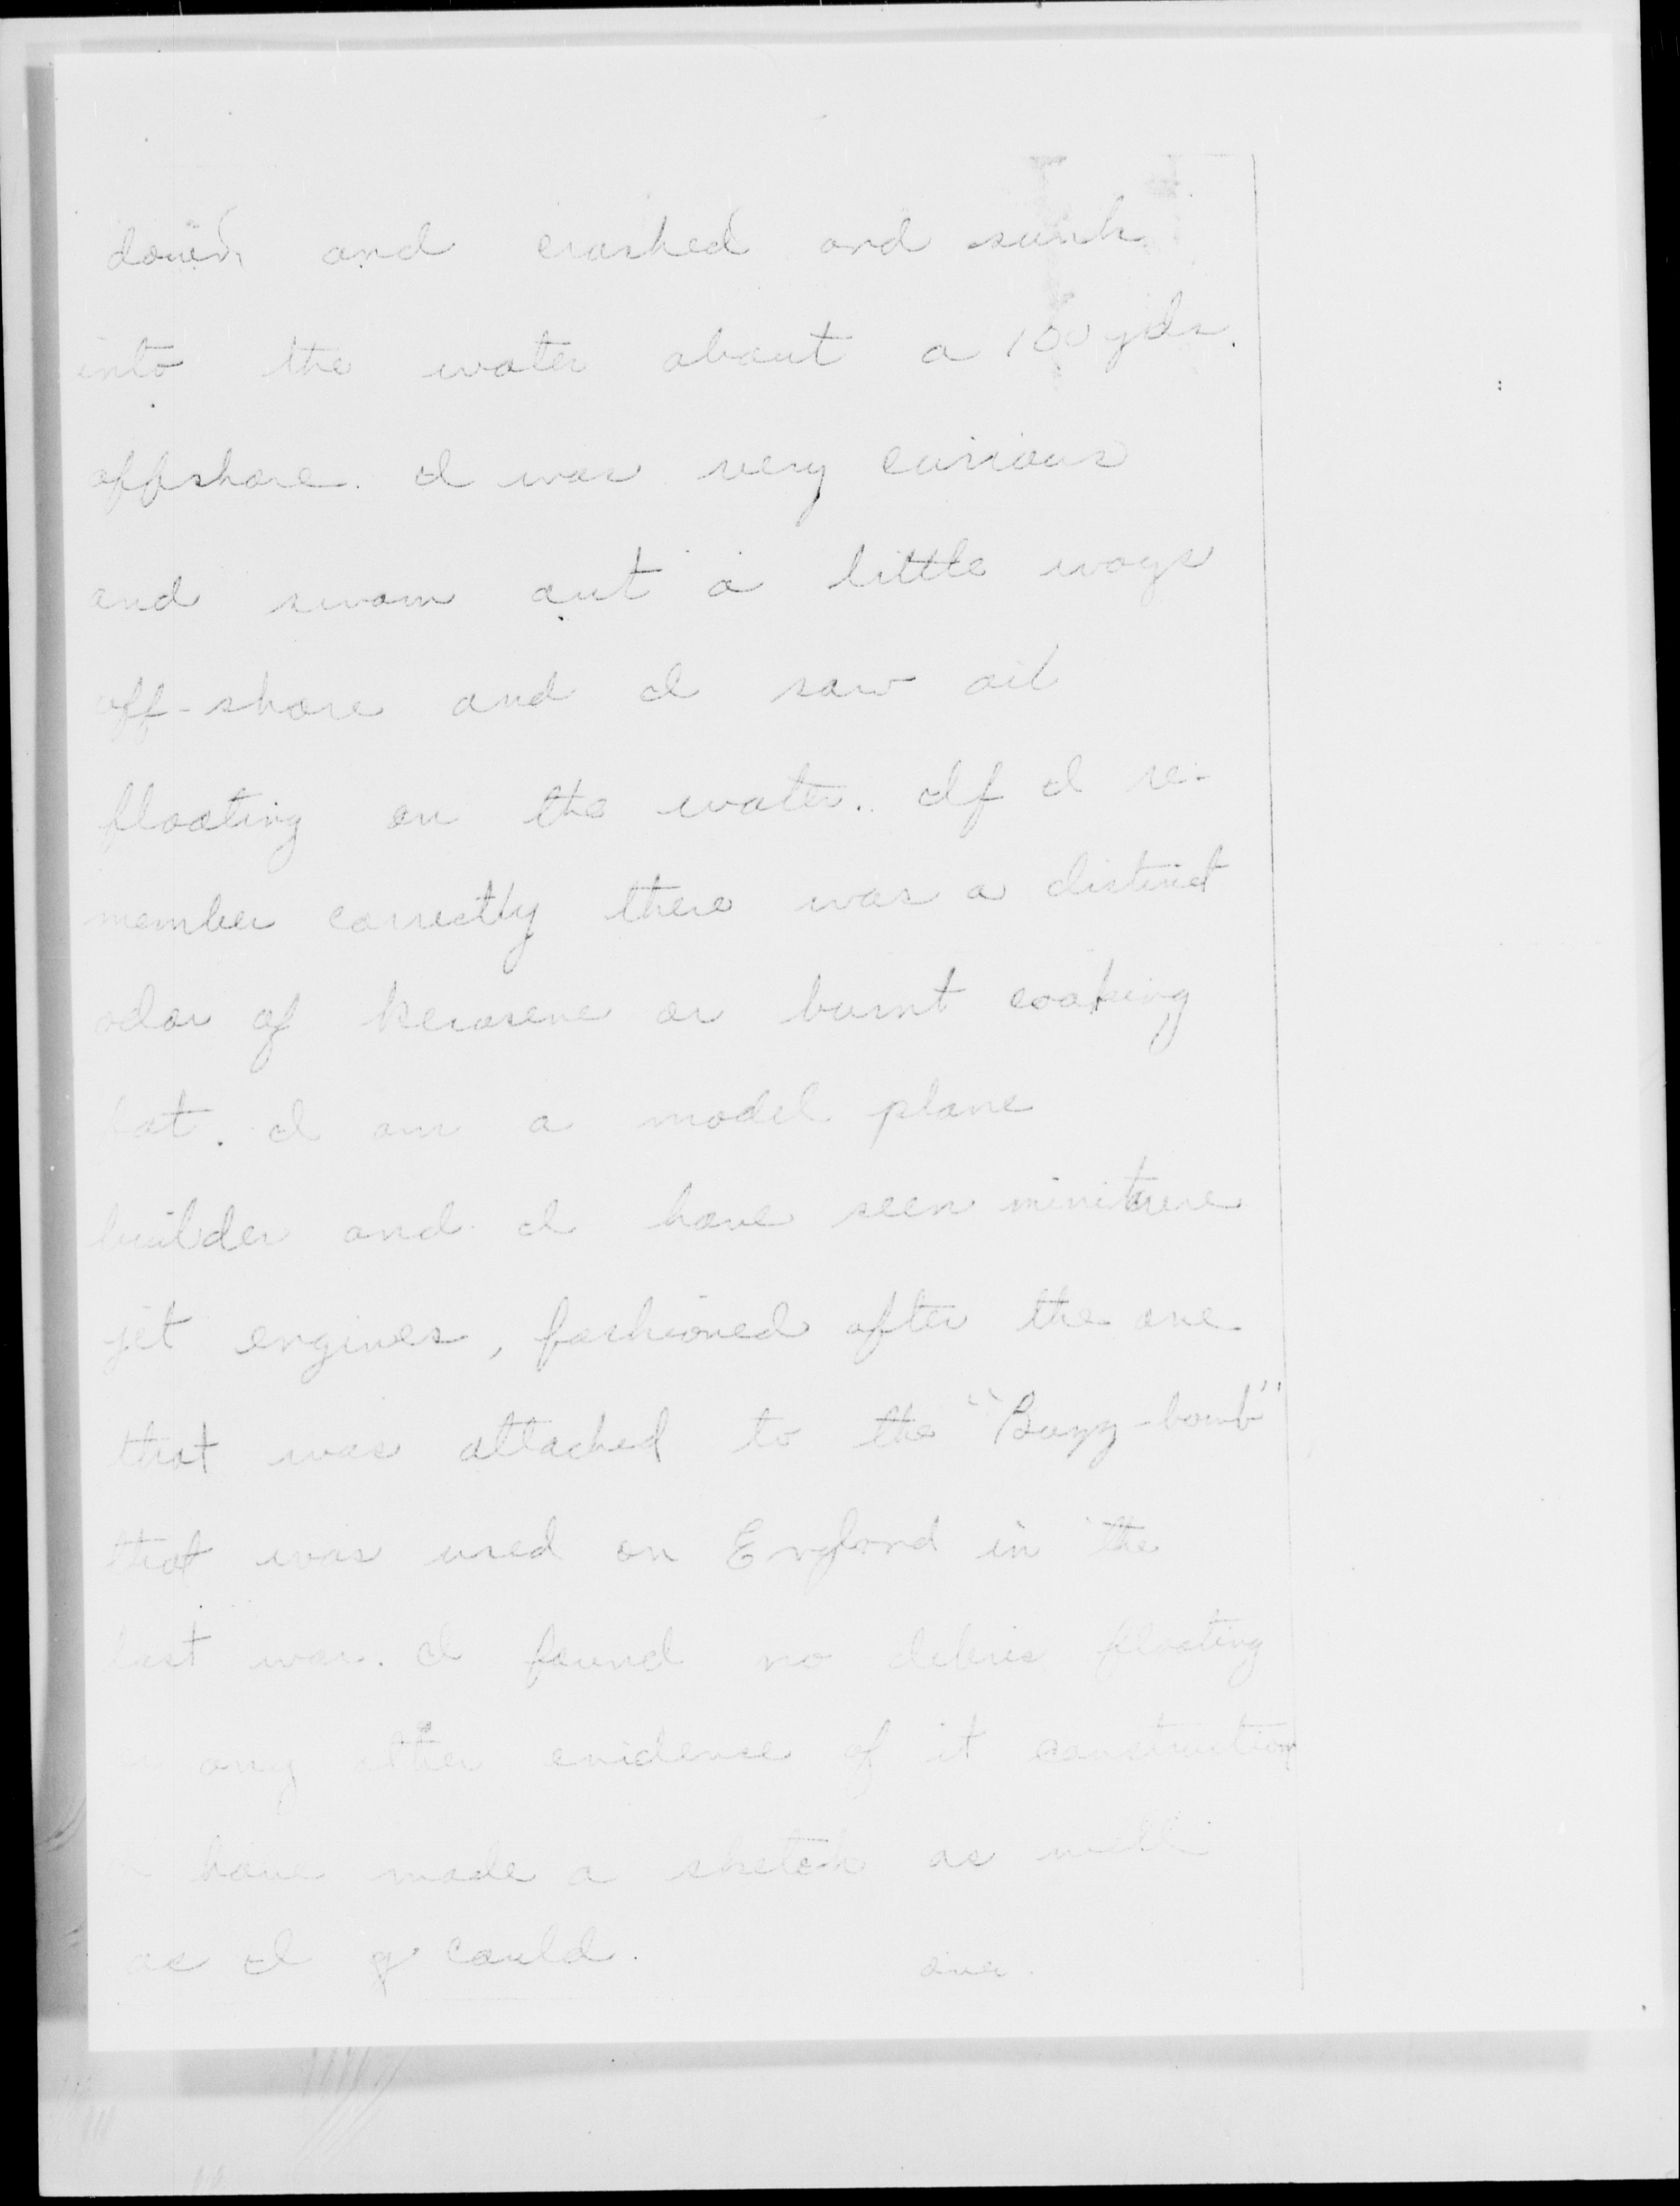 down and crashed and sunk
into the water about a 100 yds.
offshore. I was very curious
and swam out a little ways
off-shore and I saw oil
floating on the water. If I re-
member correctly there was a distinct
odor of kerosene or burnt cooking
fat. I am a model plane
builder and I have seen miniture
jet engines, fashioned after the one
that was attached to the "Buzz-bomb"
that was used on England in the
last war. I found no debris floating
or any other evidence of it construction
have made a sketch as well
as I could.
over.